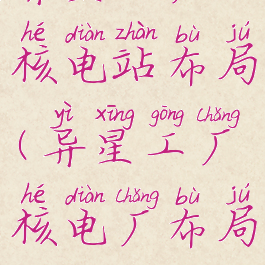 hé diàn zhàn bù jú
核电站布局
yì xīng gōng chǎng
(异星工厂
hé diàn chǎng bù jú
核电厂布局